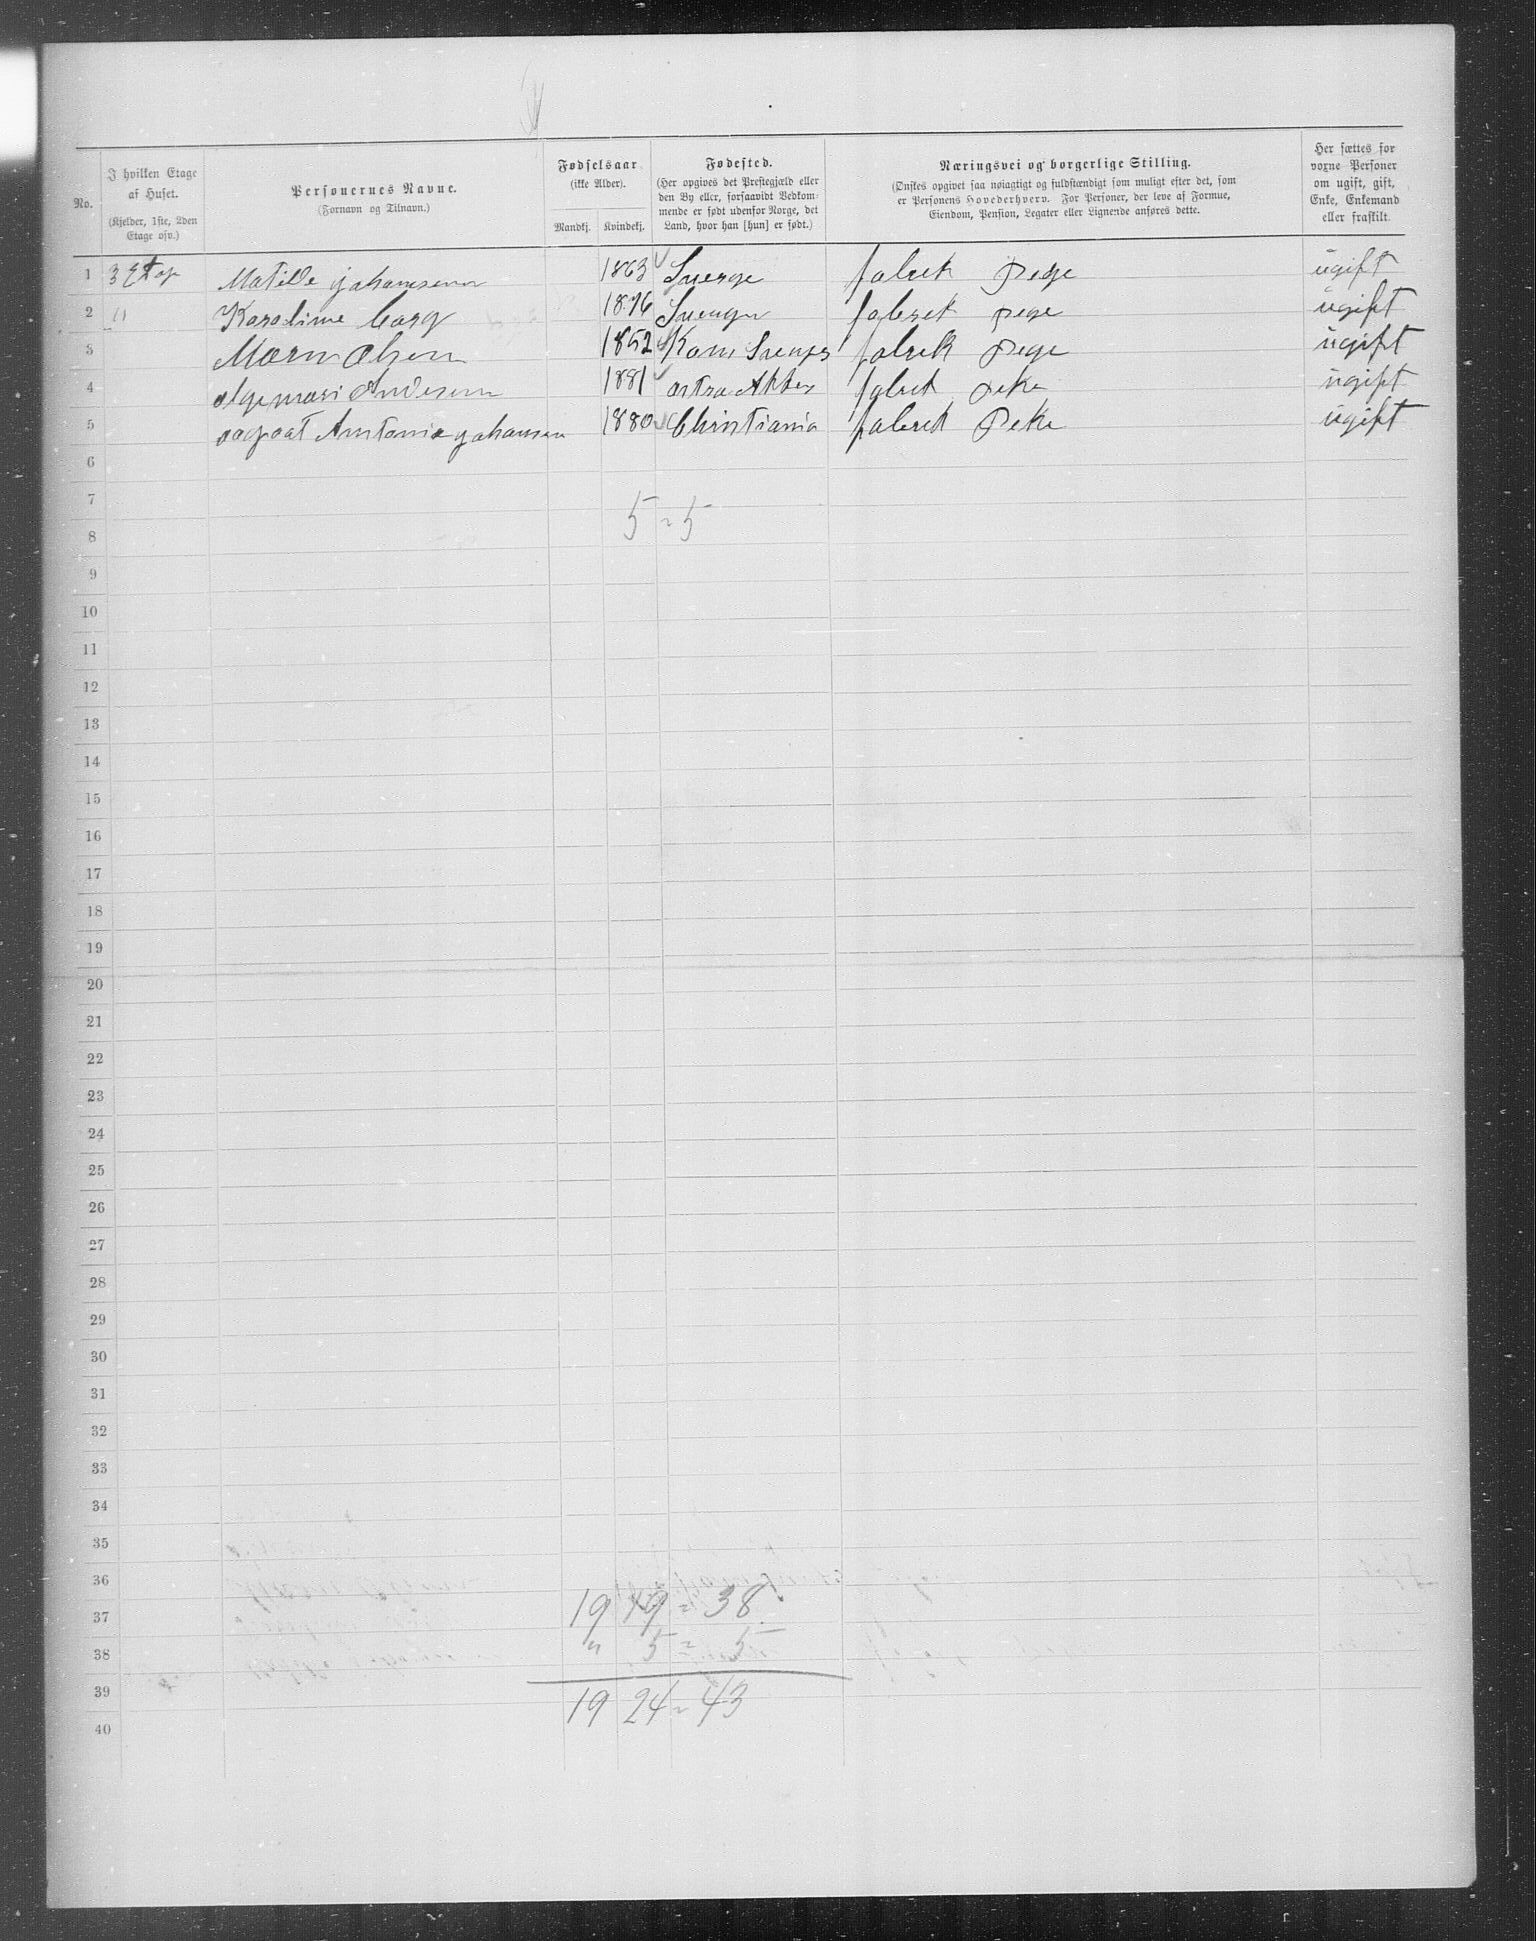 No.
I hvilken Etage af Huset.
(Kjelder, 1ste, 2den Etage osv.)
Personernes Navne.
(Fornavn og Tilnavn.)
Fødselsaar
(ikke Alder).
Mandkj. Kvindekj.
Fødested.
(Her opgives det Prestegjæld eller
den By eller, forsaavidt Vedkom-
mende er født udenfor Norge, det
Land, hvor han [hun] er født.)
Næringsvei og borgerlige Stilling.
(Ønskes opgivet saa nøiagtigt og fuldstændigt som muligt efter det, som
er Personens Hovederhverv. For Personer, der leve af Formue,
Eiendom, Pension, Legater eller Lignende anføres dette.
Her sættes for
voxne Personer
om ugift, gift,
Enke, Enkemand
eller fraskilt.
1 3 Etag Matilde Johannsenn 1863 Sverge fabrek Pege ugift
2 " Karoline Corg 1876 fabrek Pege ugift
3 Maern Olsen 1852 fabrek Pege ugift
4 olge mari Andesenn 1881 fabrek Peke ugift
5 Antonie Johansen 1880 Christiania fabrek Peke ugift
6
7
5 = 5
8
9
10
11
12
13
14
15
16
17
18
19
20
21
22
23
24
25
26
27
28
29
30
31
32
33
34
35
36
37 19 19 = 38
38 " 5 = 5
39 19 24 = 43
40